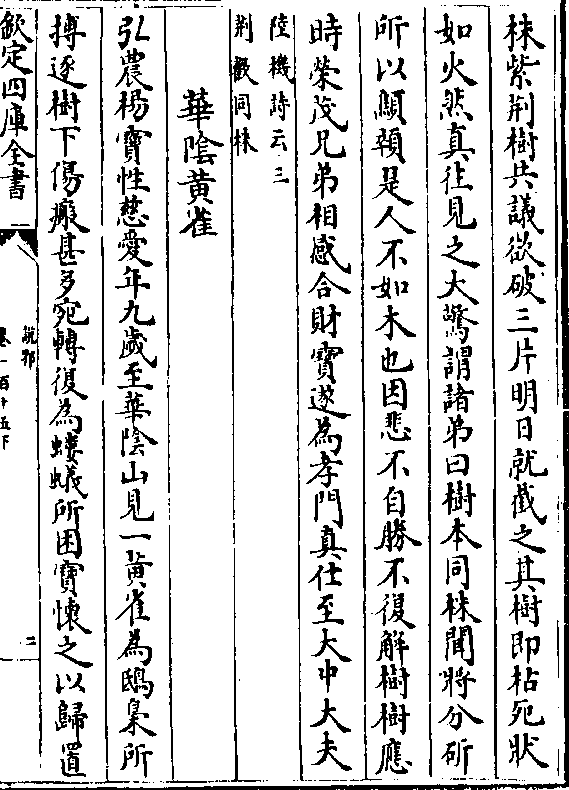 株紫荆樹共議欲破三片明日就截之其樹即枯死狀
如火然真往見之大驚謂諸弟曰樹本同株聞將分斫
所以顦顇是人不如木也因悲不自勝不復解樹樹應
時榮茂兄弟相感合財寶遂為孝門真仕至大中大夫
陸機詩云三
荆歡同株
華陰黄雀
弘農楊寶性慈愛年九歲至華陰山見一黄雀為鴟梟所
搏逐樹下傷瘢甚多宛轉復為螻蟻所困寶懷之以歸置
欽定四庫全書
說郛
卷一百十五下
二